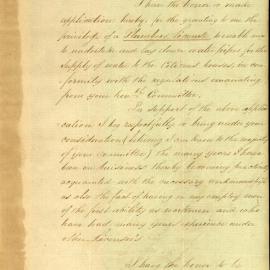 I have the honor to make
application hereby, for the granting to me the
privilege of a Plumbers License to enable me
to undertake and lay down water pipes for the
supply of water to the Citizens houses, in con-
formity with the regulations emanating
from your honble Committee.
In support of the above appli-
cation I beg respectfully to bring under your
consideration (although I am known to the majority
of your Committee) the many years I have
been in business thereby becoming
acquainted with the necessary workmanship
as also the fact of having in my employ men
of the first ability as workmen and who
have had many years experience under
I have the honor to be